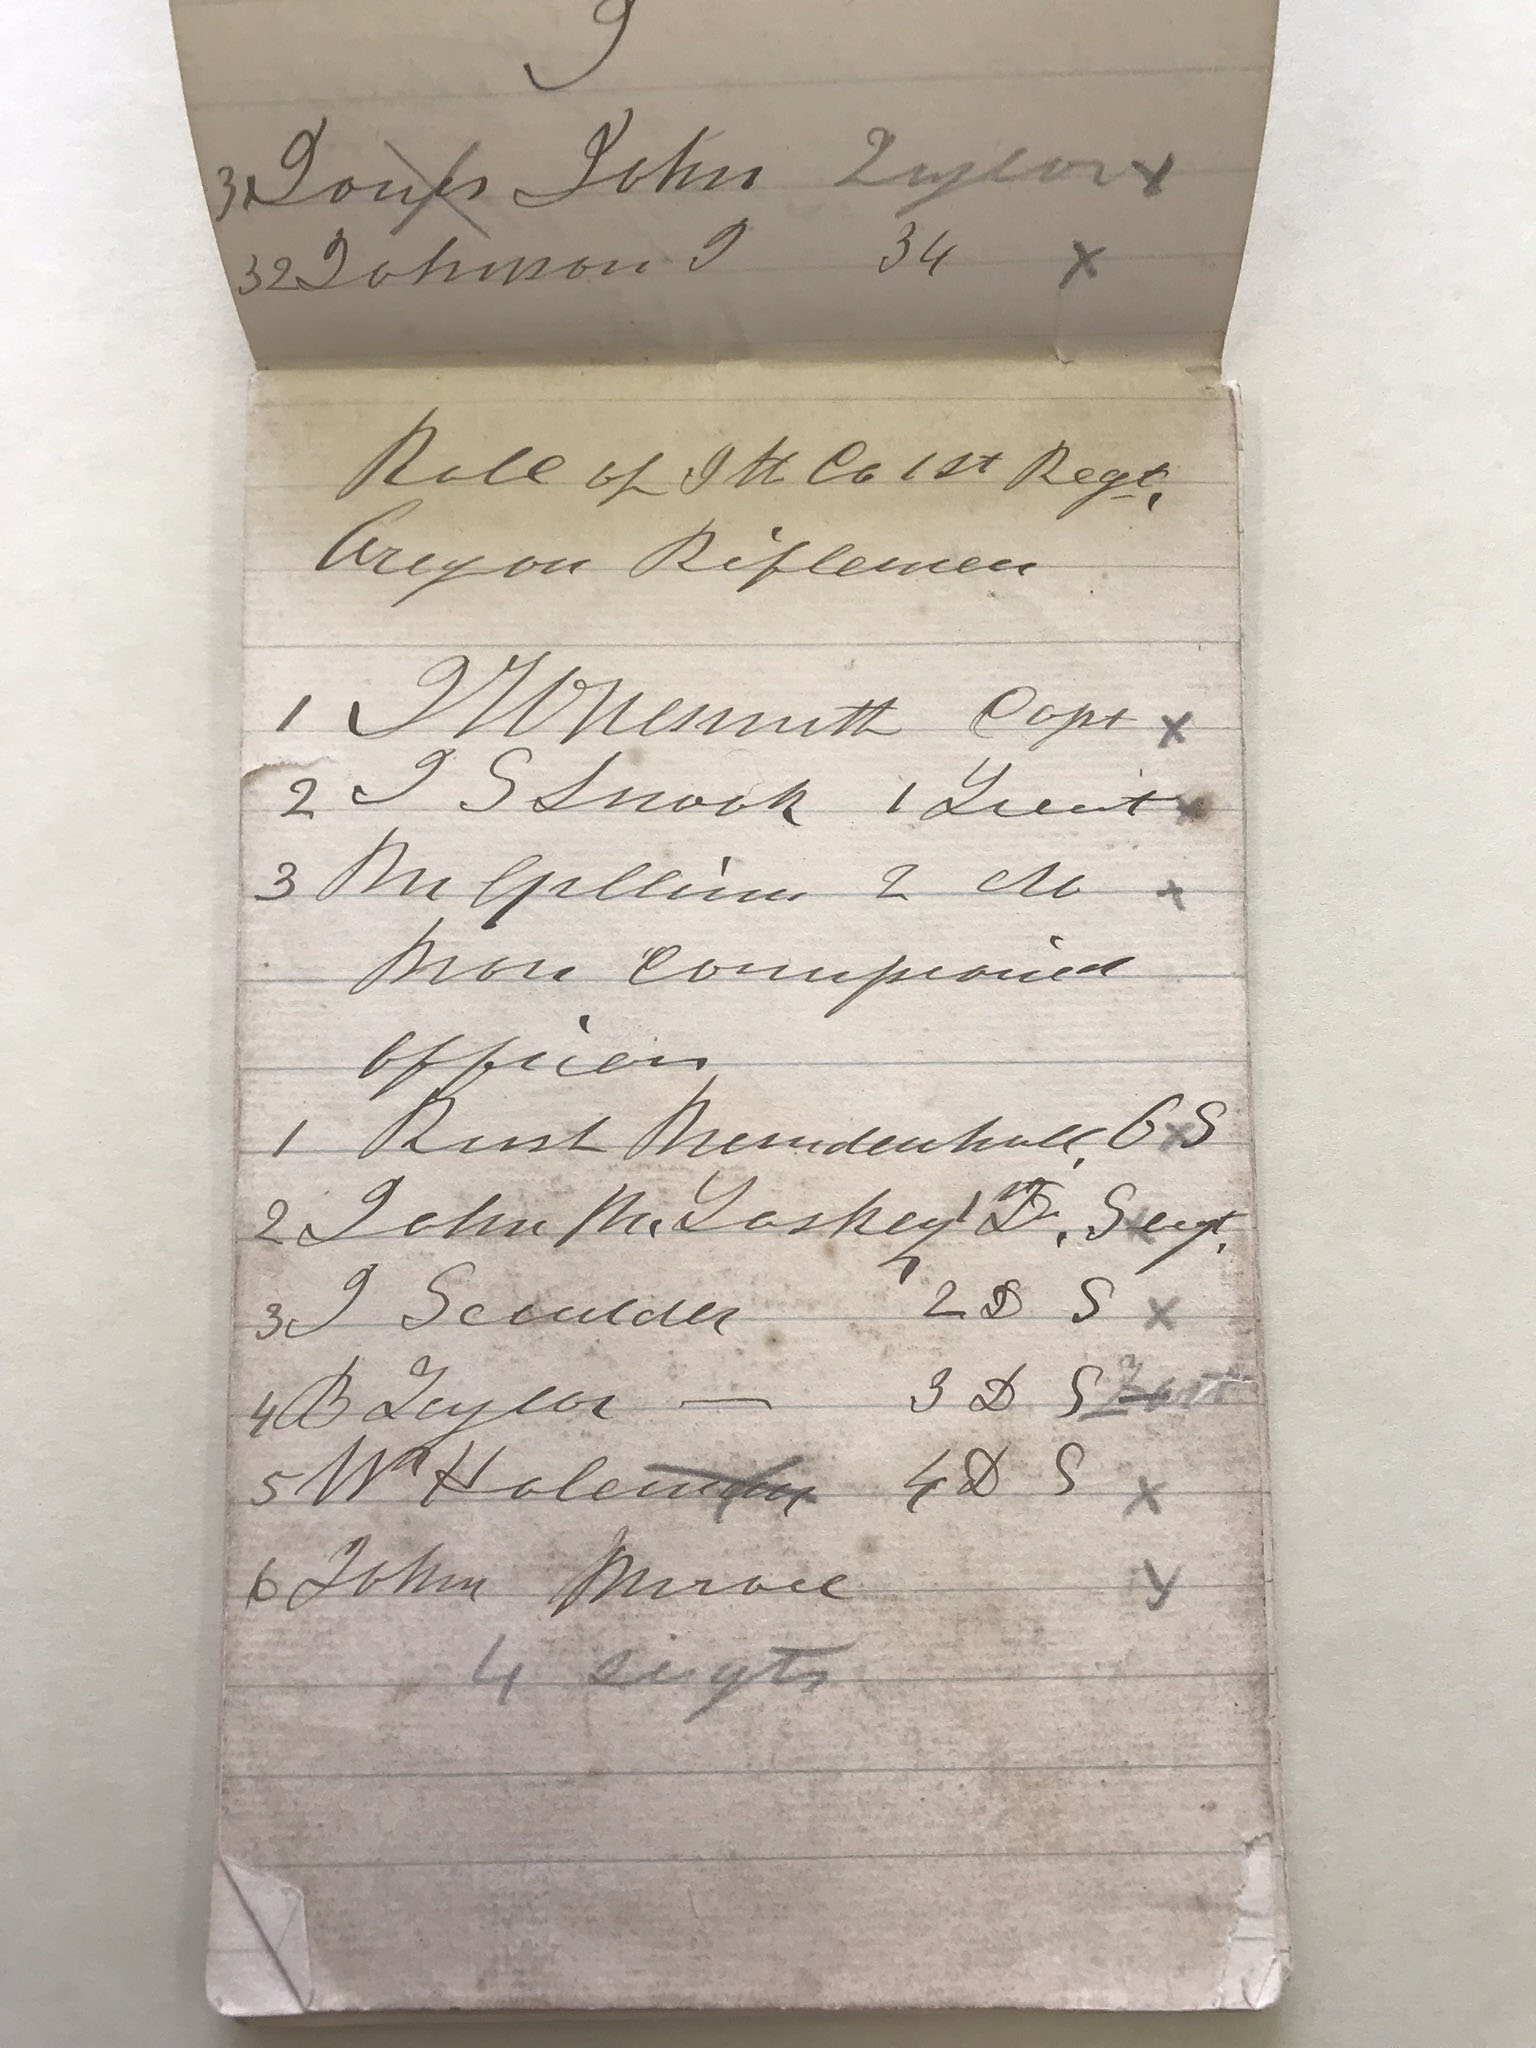 J
31 John Taylor x
32 Johnson J 34 x
Role of Co 1st Regt.
Oregon Riflemen
1 J W Nesmith Capt x
2 J S Snook 1 Lieut x
3 Mc Gilliam 2 do x
Non
officers
1 Mendenhall, O S x
2 John Mc. Loskey 1 D. Sergt. x
3 J Scudder 2 D S x
4 B Taylor — 3 D S
5 Wm Holeman 4 D S x
6 John x
4 sergts